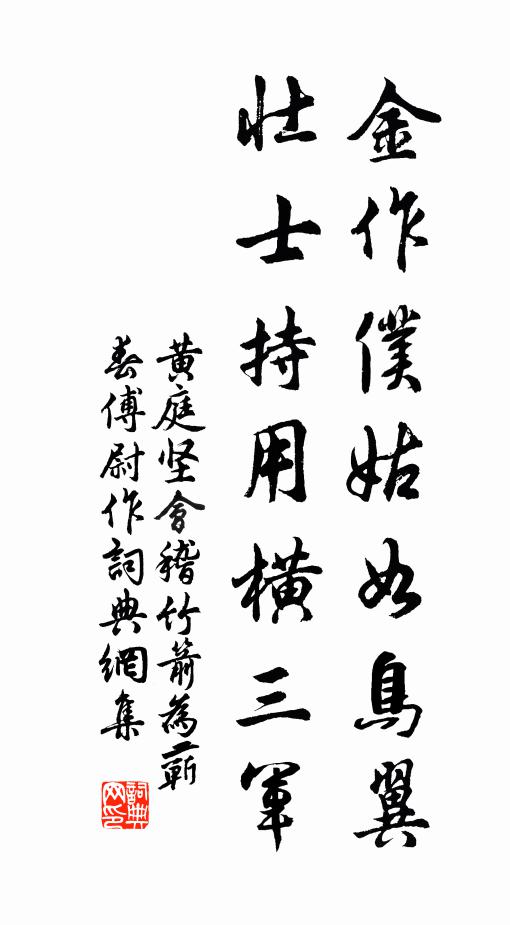 金作僕姑如鳥翼
壯士持用橫三軍
黃庭坚會稽竹箭為蘄
春傅尉作詞典網集
詞典
网印